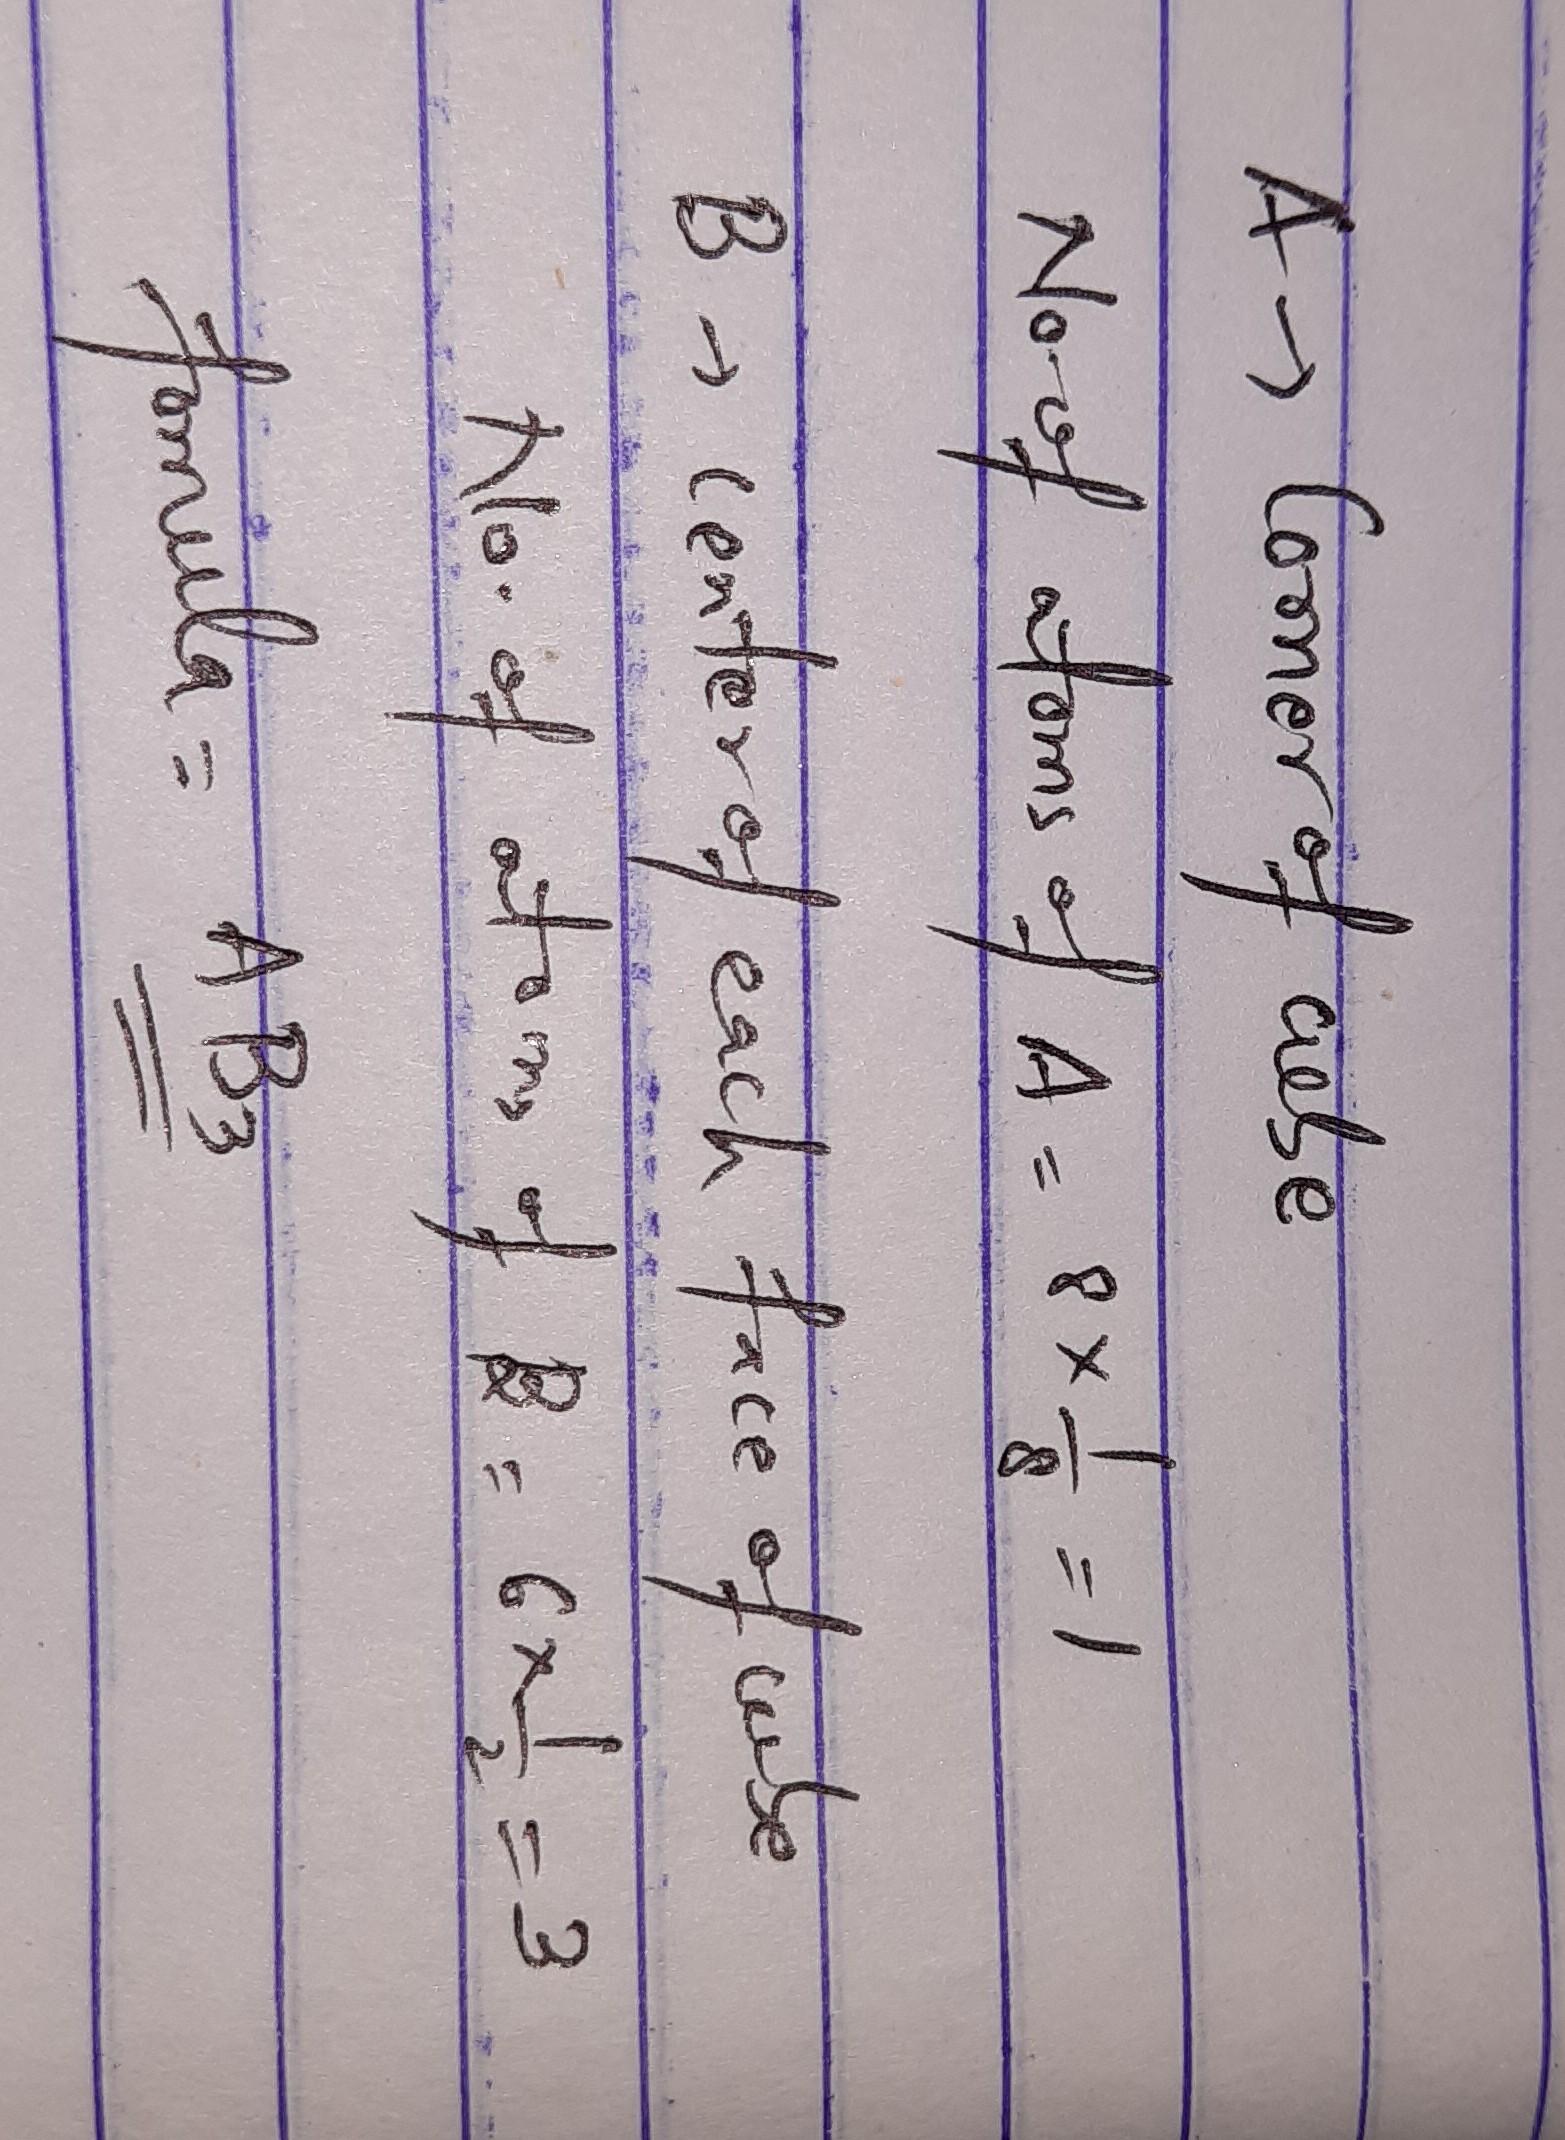 A → Corner of cube
No. of atoms of A = 8 × 1/8 = 1
B → center of each face of cube
No. of atoms of B = 6 × 1/2 = 3
formula = AB₃